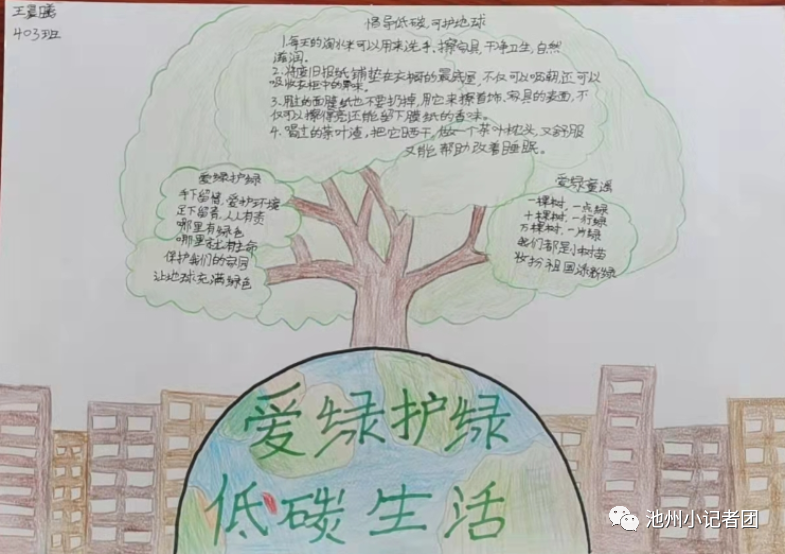 王夏曦
403班
倡导低碳,可护地球
1.每天的淘水米可以用来洗手、擦家具,干净卫生,自然
滋润。
2.将废旧报纸铺垫在衣橱的最底层,不仅可以吸潮,还可以
吸收衣柜中的异味。
3.用过的面膜纸也不要扔掉,用它来擦首饰、家具的表面,不
仅可以擦得亮还能留下膜纸的香味。
4.喝过的茶叶渣,把它晒干,做一个茶叶枕头,又舒服
又能帮助改善睡眠。
爱绿护绿
手下留情,爱护环境
足下留青,人人有责
哪里有绿色
哪里就有生命
保护我们的家园
让地球充满绿色
爱绿童谣
一棵树,一点绿
十棵树,一行绿
万棵树,一片绿
我们都是小树苗
妆扮祖国添新绿
爱绿护绿
低碳生活
池州小记者团